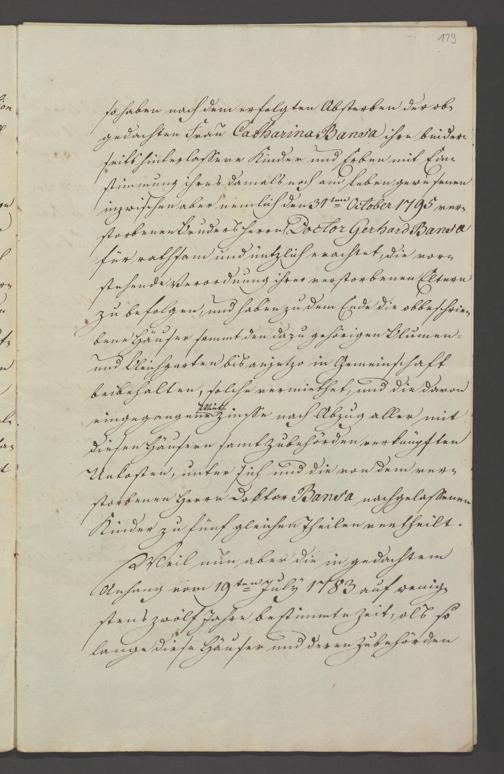 179
so haben nach dem erfolgten Absterben der ob-
gedachten Frau Catharina Bansa ihre beider-
seits hinterlassene Kinder und Erben mit Ein-
stimmung ihres damals noch am Leben gewesenen
inzwischen aber nemlich den 31ten October 1795 ver-
storbenen Bruders Herrn Doctor Gerhard Bansa
für rathsam und nützlich erachtet, die vor-
stehende Verordnung ihrer verstorbenen Eltern
zu befolgen, und haben zu dem Ende die obbeschrie-
bene Häuser sammt den dazu gehörigen Blumen-
und Bleichgarten bis anjetzo in Gemeinschaft
beibehalten, solche vermiethet, und die davon
eingegangene Zinsse nach Abzug aller mit
diesen Häusern samt Zubehörden verknüpften
Unkosten, unter sich und die von dem ver-
storbenen Herrn Doktor Bansa nachgelassenen
Kinder zu fünf gleichen Theilen vertheilt.
Weil nun aber die in gedachtem
Anhang vom 19ten July 1783 auf wenig-
stens zwölf Jahre bestimmte Zeit, als so
lange diese Häuser und deren Zubehörden